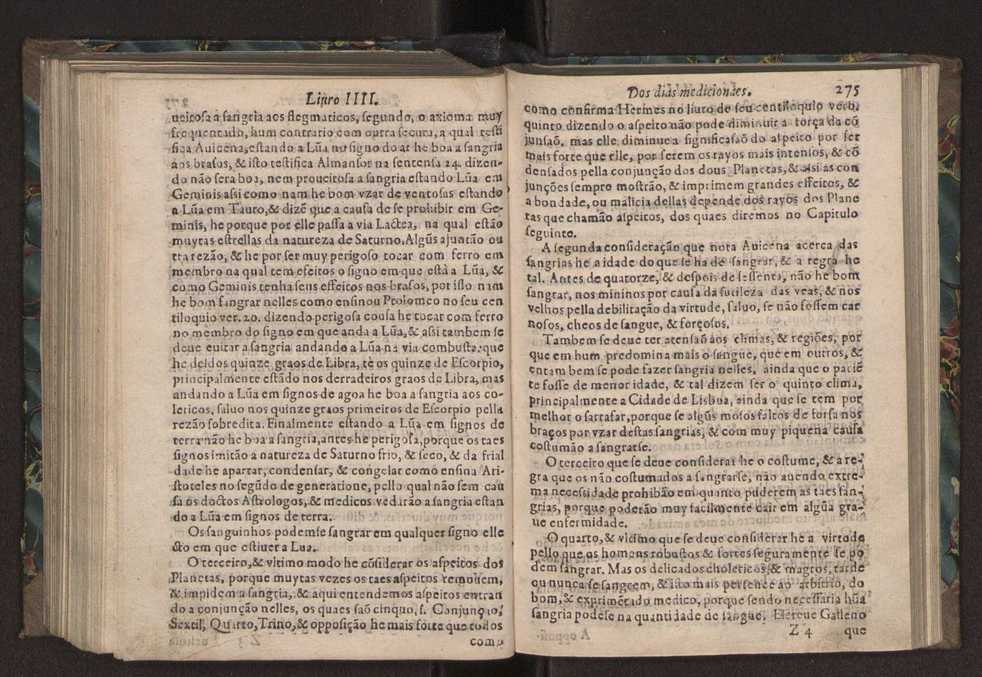 Liuro IIII.
ueitosa a sangria aos flegmaticos, segundo, o axioma muy
frequentado, hum contrario com outro se cura, a qual testi
fica Auicena, estando a Lũa no signo do ar he boa a sangria
aos brasos, & isto testifica Almansor na sentensa 24. dizen-
do não sera boa, nem proueitosa a sangria estando Lũa em
Geminis assi como nam he bom vzar de ventosas estando
a Lũa em Tauro, & dizẽ que a causa de se prohibir em Ge-
minis, he porque por elle passa a via Lactea, na qual estão
muytas estrellas da natureza de Saturno. Algũs ajuntão ou
tra rezão, & he por ser muy perigoso tocar com ferro em
membro na qual tem efeitos o signo em que està a Lũa, &
como Geminis tenha seus effeitos nos brasos, por isso nam
he bom sangrar nelles como ensinou Ptolomeo no seu cen
tiloquio ver. 20. dizendo perigosa cousa he tocar com ferro
no membro do signo em que anda a Lũa, & assi tambem se
deue euitar a sangria andando a Lũa na via combusta, que
he desdos quinze graos de Libra, tè os quinze de Escorpio,
principalmente estãdo nos derradeiros graos de Libra, mas
andando a Lũa em signos de agoa he boa a sangria aos co-
lericos, saluo nos quinze graos primeiros de Escorpio pella
rezão sobredita. Finalmente estando a Lũa em signos de
terra não he boa a sangria, antes he perigosa, porque os taes
signos imitão a natureza de Saturno frio, & seco, & da frial
dade he apartar, condensar, & congelar como ensina Ari-
stoteles no segũdo de generatione, pello qual não sem cau
sa os doctos Astrologos, & medicos vedirão a sangria estan
do a Lũa em signos de terra.
Os sanguinhos podemse sangrar em qualquer signo elle
cto em que estiuer a Lua.
O terceiro, & vltimo modo he cõsiderar os aspeitos dos
Planetas, porque muytas vezes os taes aspeitos remouem,
& impidem a sangria, & aqui entendemos aspeitos entran
do a conjunção nelles, os quaes saõ cinquo, s. Conjunção,
Sextil, Quarto, Trino, & opposição he mais forte que todos
como
Dos dias medicionaes. 275
como confirma Hermes no liuro de seu centiloquio verb.
quinto dizendo o aspeito não pode diminuir a força da cõ
junsaõ, mas elle diminue a significasaõ do aspeito por ser
mais forte que elle, por serem os rayos mais intensos, & cõ
densados pella conjunção dos dous Planetas, & assi as con
junções sempre mostrão, & imprimem grandes effeitos, &
a bondade, ou malicia dellas depende dos rayos dos Plane
tas que chamão aspeitos, dos quaes diremos no Capitulo
seguinte.
A segunda consideração que nota Auicena acerca das
sangrias he a idade do que se ha de sangrar, & a regra he
tal. Antes de quatorze, & despois de sessenta, não he bom
sangrar, nos mininos por causa da sutileza das veas, & nos
velhos pella debilitação da virtude, saluo, se não fossem car
nosos, cheos de sangue, & forçosos.
Tambem se deue ter atensaõ aos climas, & regiões, por
que em hum predomina mais o sangue, que em outros, &
entam bem se pode fazer sangria nelles, ainda que o paciẽ
te fosse de menor idade, & tal dizem ser o quinto clima,
principalmente a Cidade de Lisboa, ainda que se tem por
melhor o sarrafar, porque se algũs mosos faltos de forsa nos
braços por vzar destas sangrias, & com muy piquena causa
costumão a sangrarse.
O terceiro que se deue considerar he o costume, & a re-
gra que os não costumados a sangrarse, não auendo extre-
ma necessidade prohibão em quanto puderem as taes san-
grias, porque poderão muy facilmente cair em algũa gra-
ue enfermidade.
O quarto, & vltimo que se deue considerar he a virtude
pello que os homens robustos & fortes seguramente se po
dem sangrar. Mas os delicados cholericos, & magros, tarde
ou nunca se sangrem, & isto mais pertence ao arbitrio, do
bom, & exprimẽtado medico, porque sendo necessaria hũa
sangria podese na quantidade de sangue, Escreue Galleno
Z 4 que